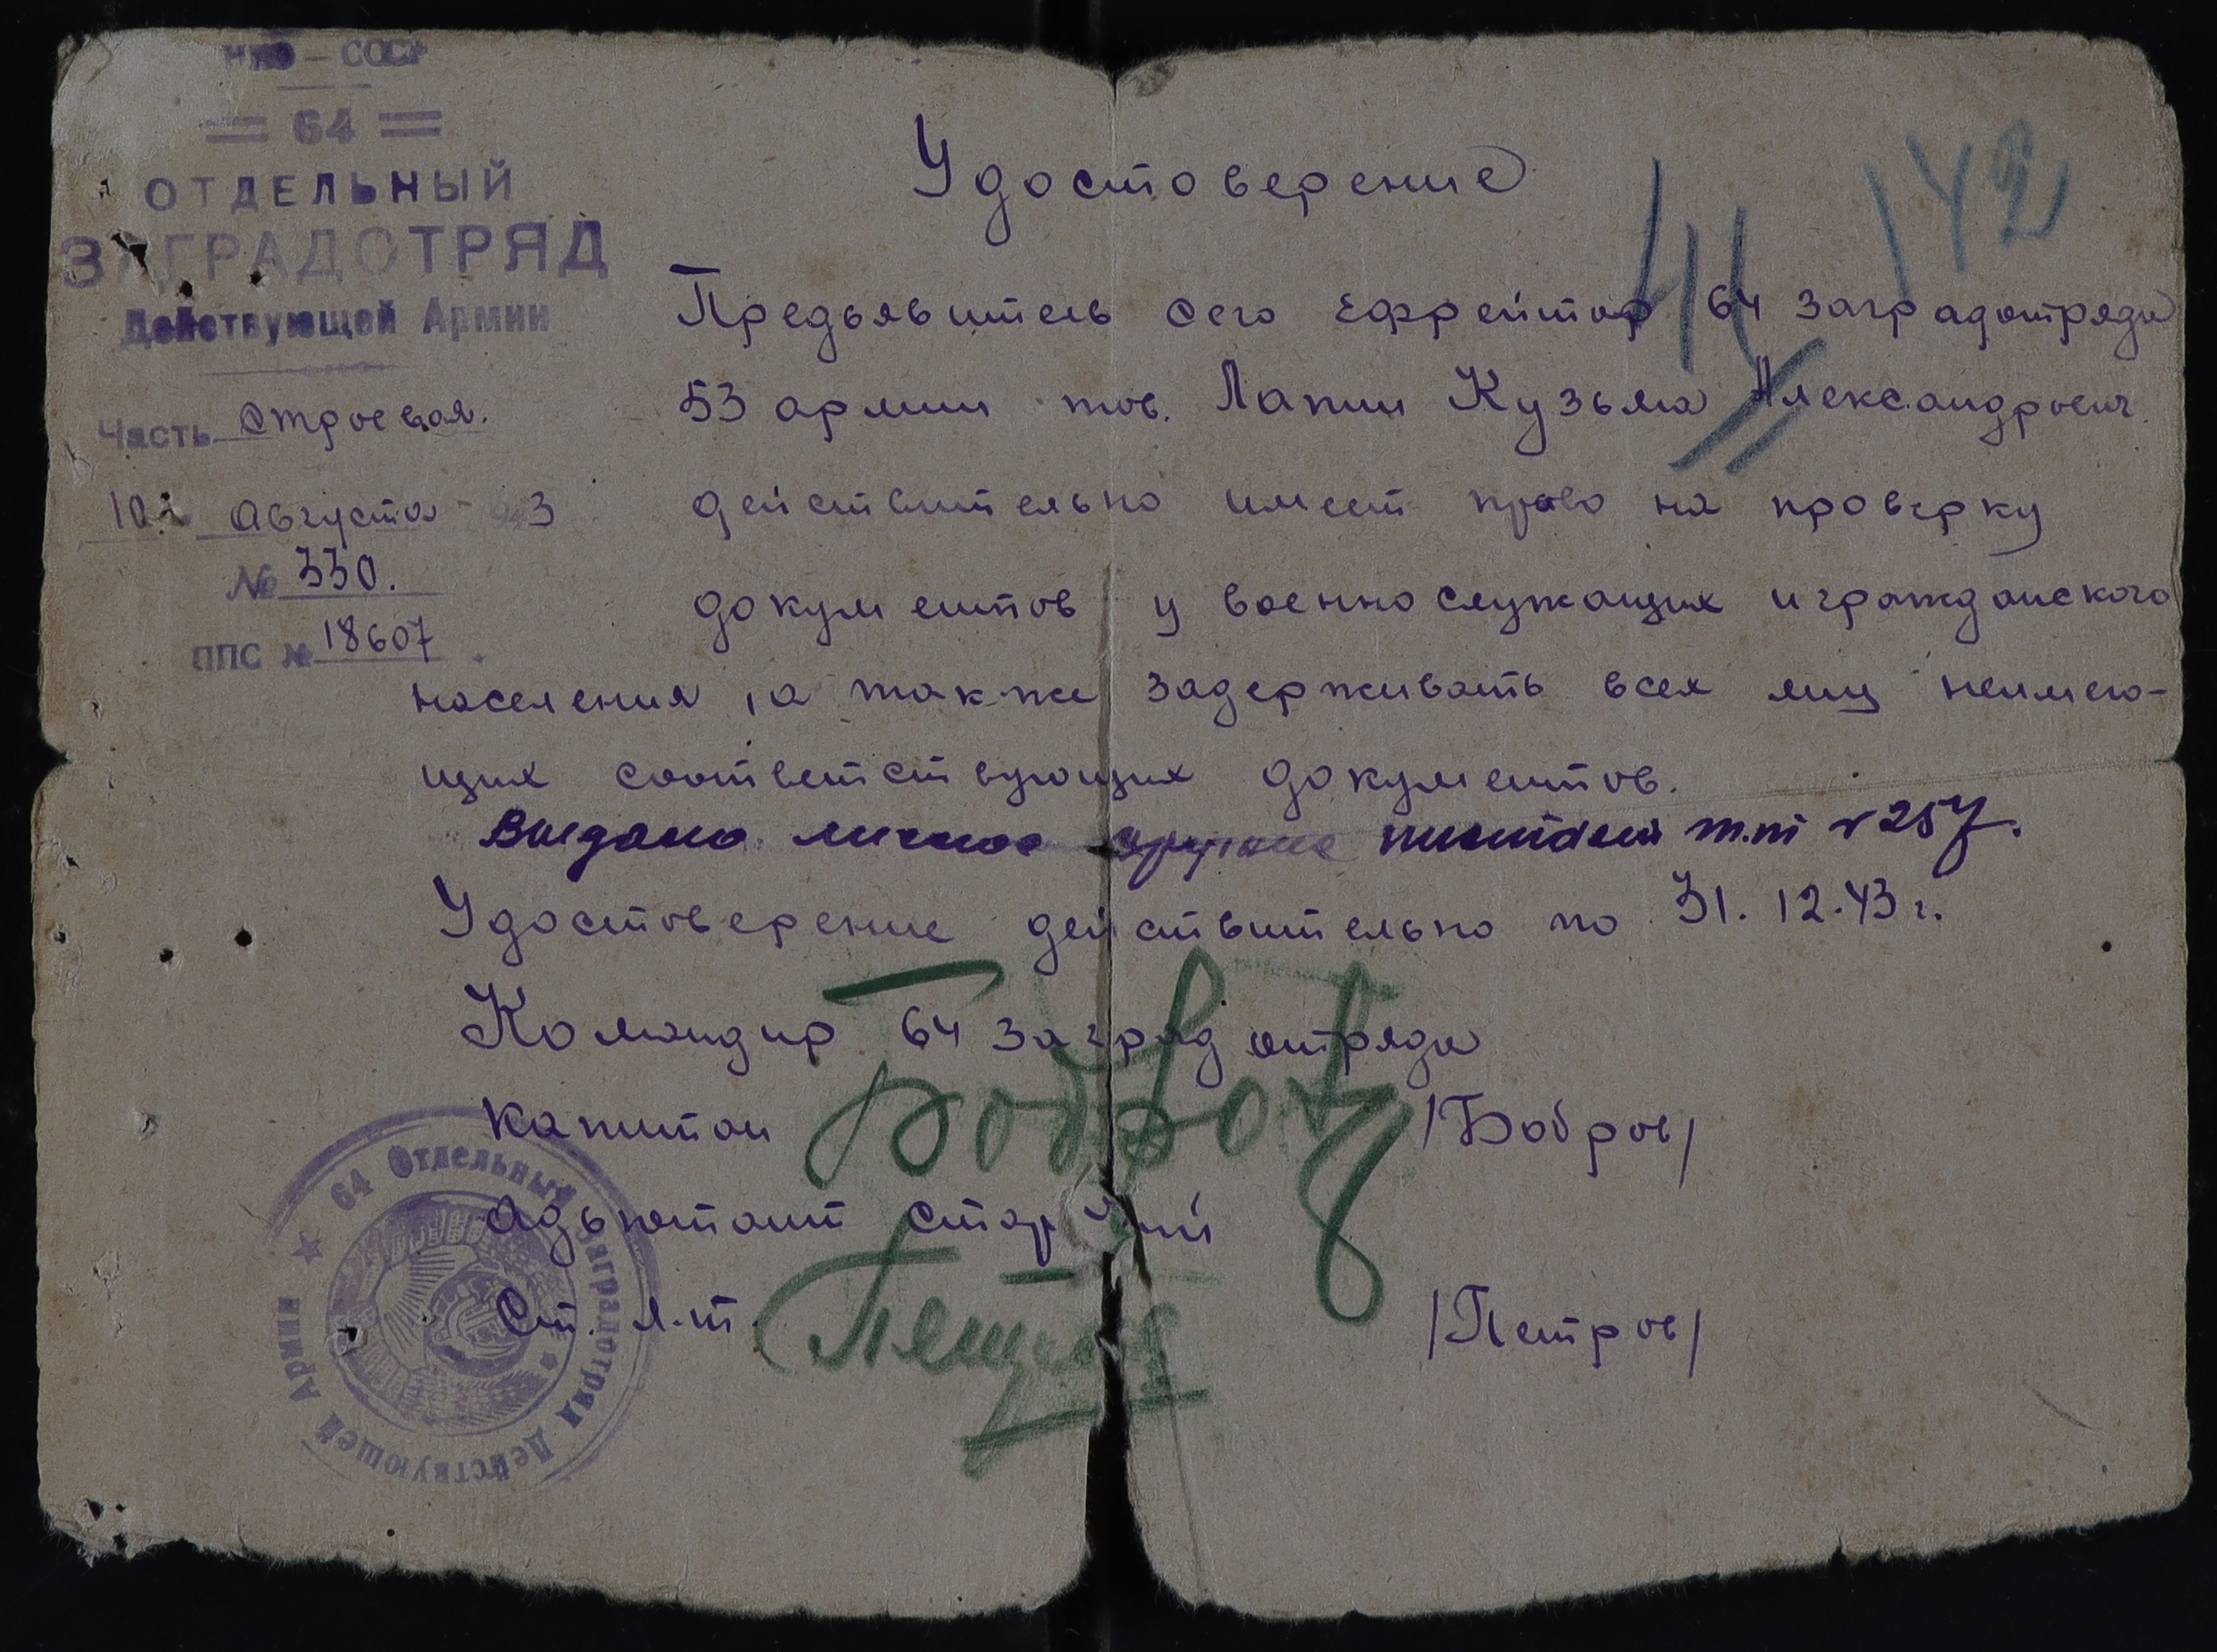 НКО – СССР
64
ОТДЕЛЬНЫЙ
ЗАГРАДОТРЯД
Действующей Армии
Часть Строевая.
10 Августа 943
№ 330.
ППС № 18607
142
41
Удостоверение
Предьявитель сего Ефрейтор 64 заградотряда
53 армии тов. Лапин Кузьма Александрович
действительно имеет право на проверку
документов у военнослужащих и гражданского
населения, а так-же задерживать всех лиц неимею-
щих соответствующих документов.
Выдано личное оружие пистолет т.т № 257.
Удостоверение действительно по 31.12.43 г.
Командир 64 заградотряда
капитан Бобров /Бобров/
Адьютант старший
Ст. л-т. Петров /Петров/
64 Отдельный Заградотряд Действующей Армии